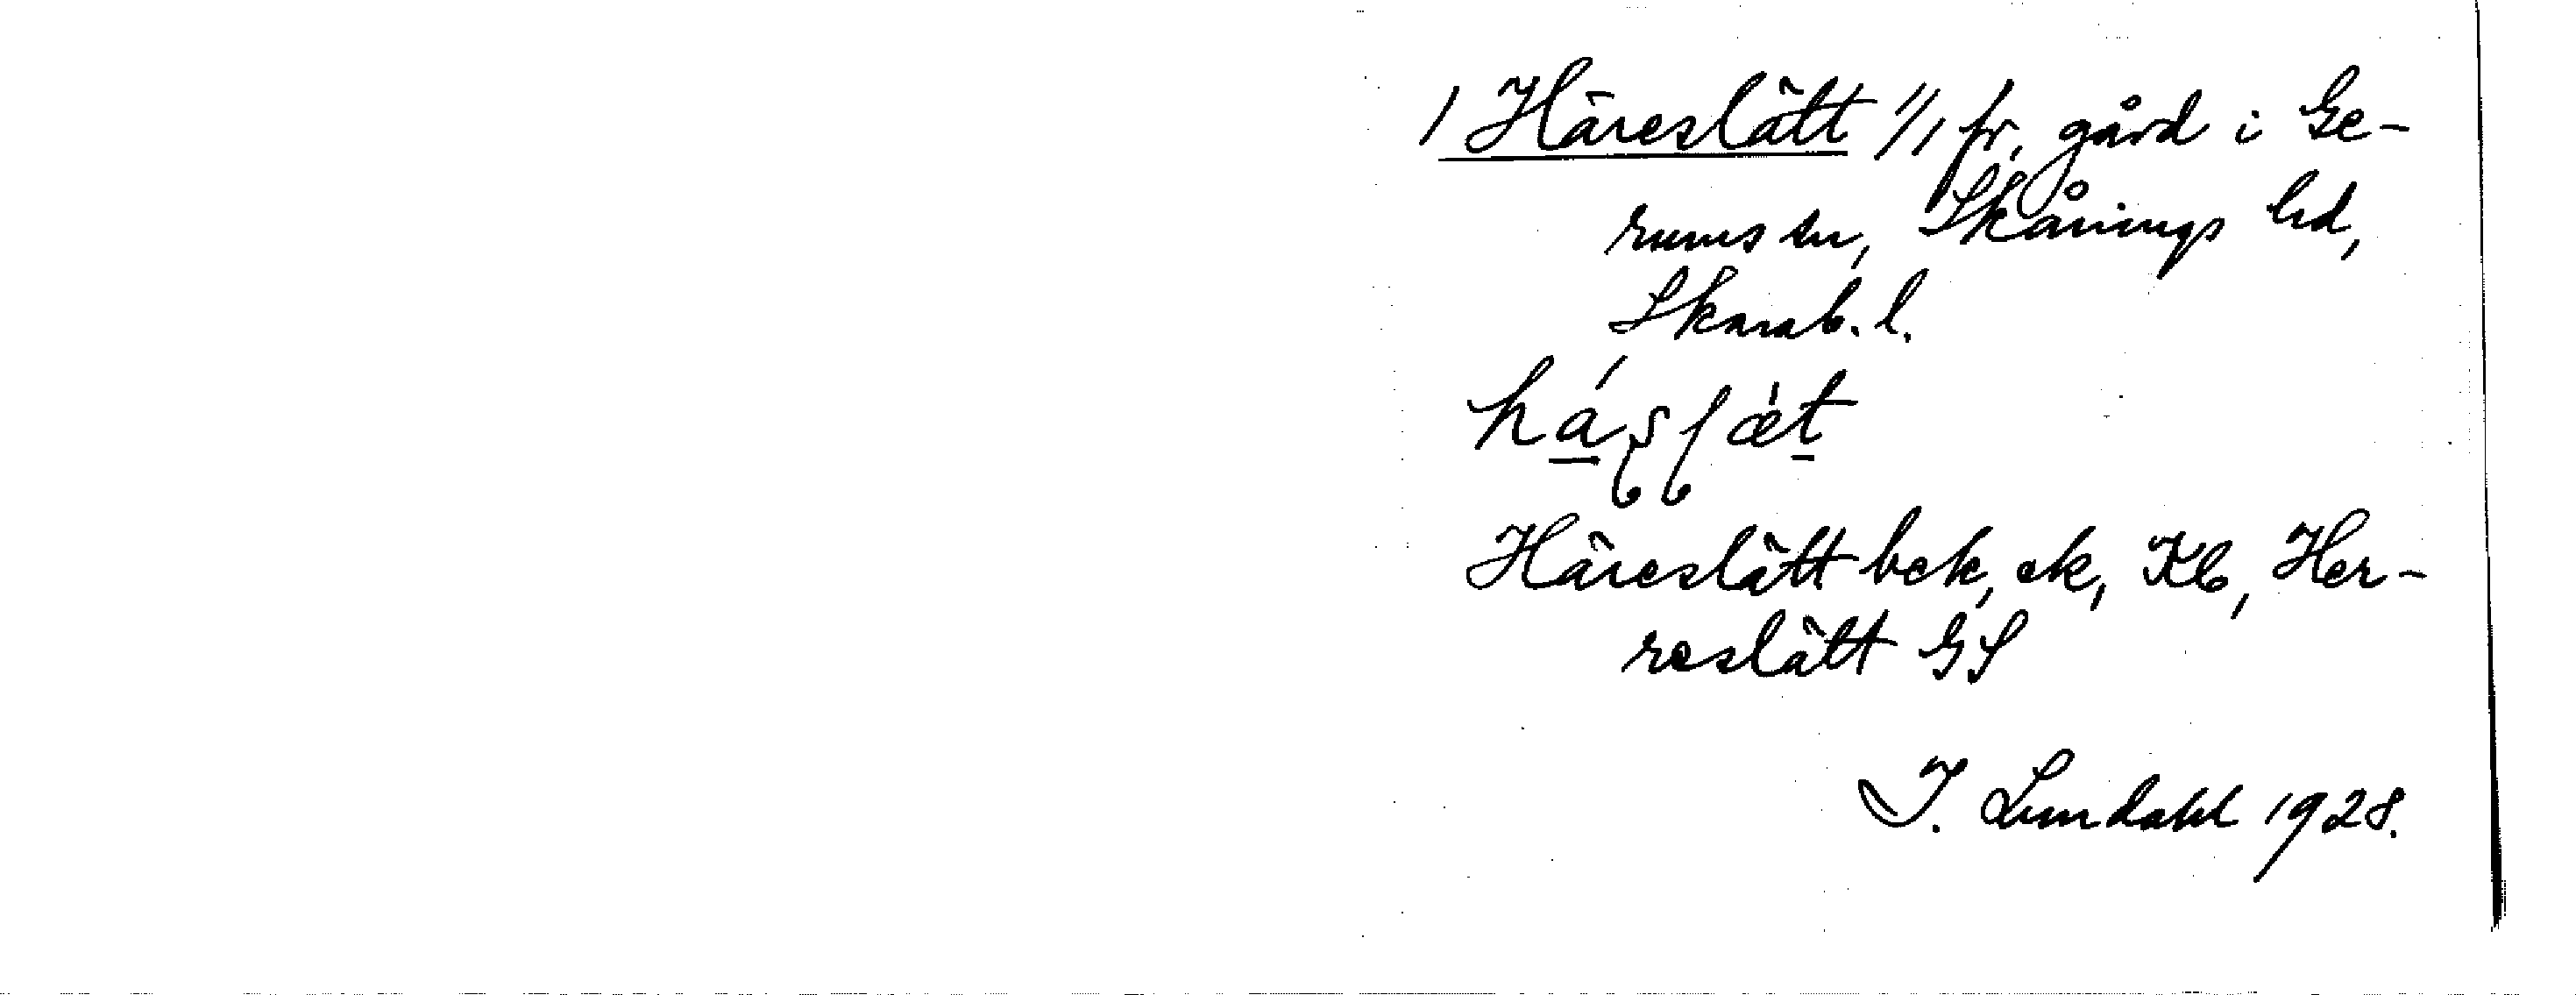 / Häreslätt 1/1 fr, gård i Ge-
rums sn, Skånings hd,
Skarab. l.
Häreslätt bek, ek, Kb, Her-
reslätt GS
I. Lundahl 1928.